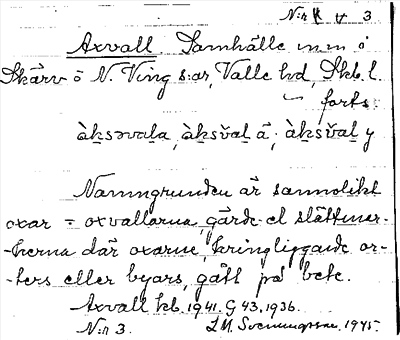 N:r 3
Axvall. Samhälle m.m i
Skärv o N. Ving s:ar, Valle hd, Skb. l.
forts.
àksəvala, àksval å; àksval y
Namngrunden är sannolikt
oxar = oxvallarna, gärde- el slåttmar-
-kerna där oxarne, kringliggande or-
ters eller byars, gått på bete.
Axvall kb. 1941. G 43. 1936.
N:r 3. L M Svenungsson. 1945.